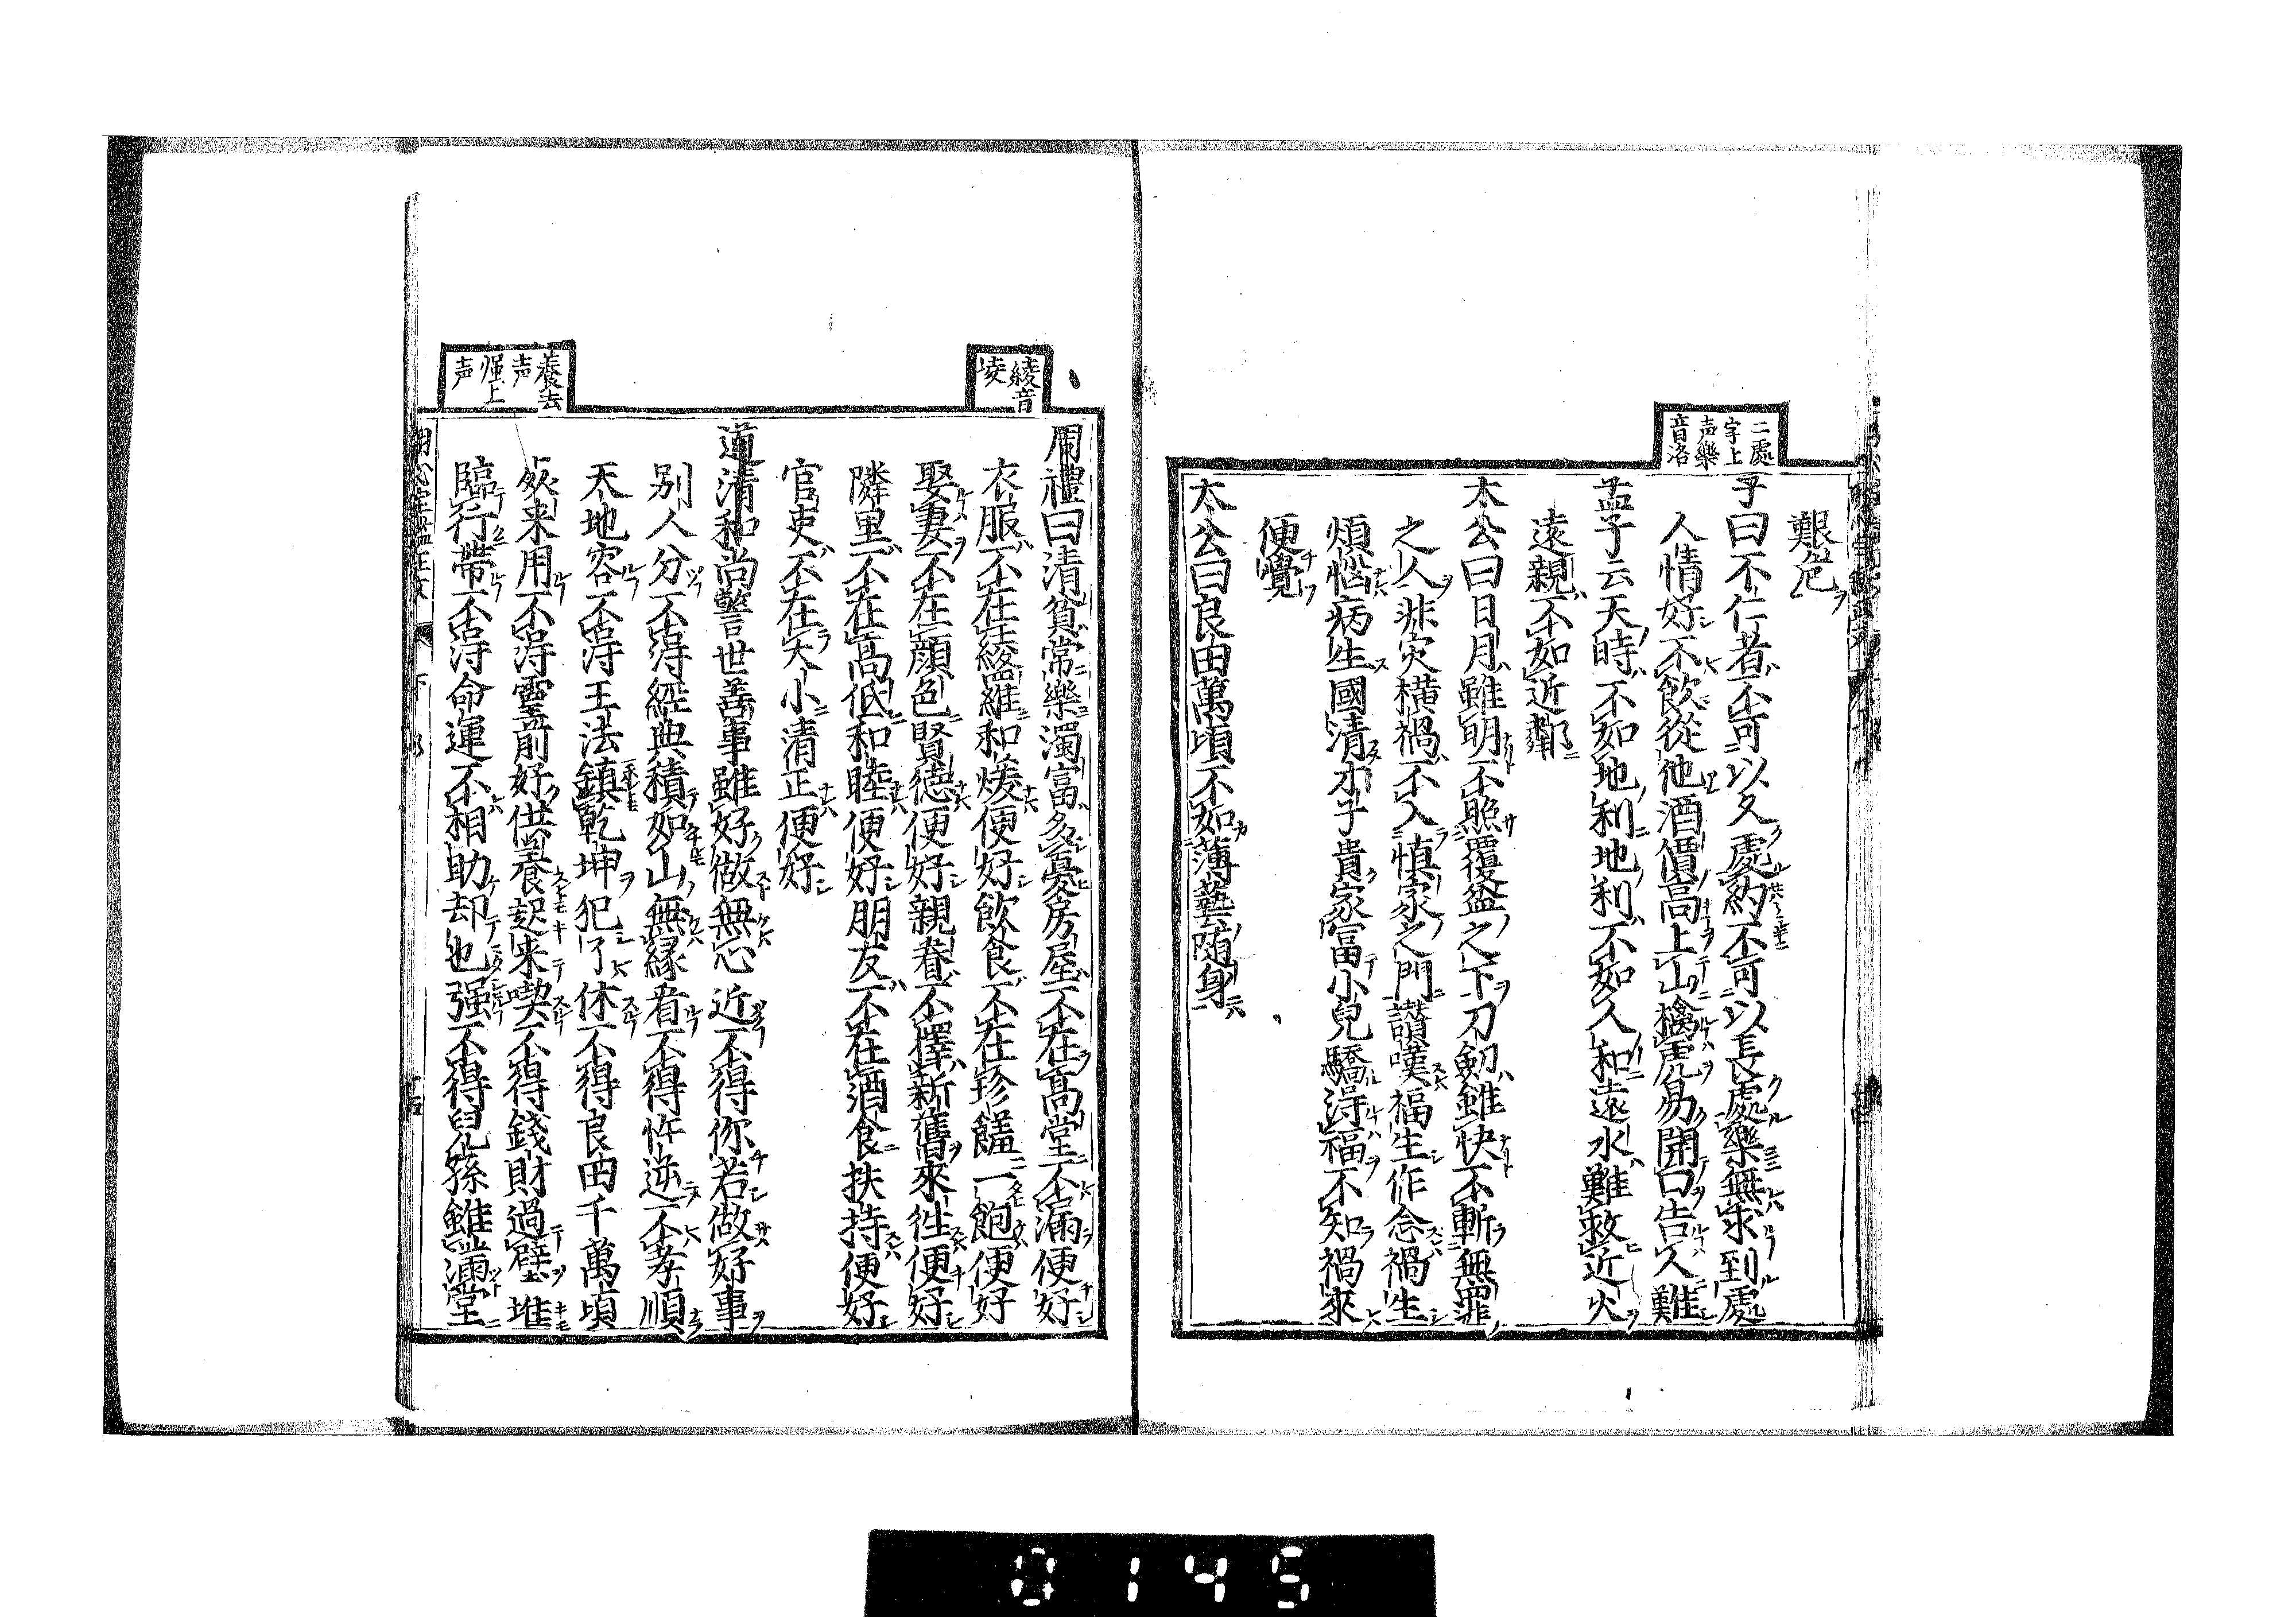 二處
字上
声樂
音洛
艱危
子曰不仁者不可以久處約不可以長處樂無求到處
人情好不飲從他酒價高上山擒虎易開口告人難
孟子云天時不如地利地利不如人和遠水難救近火
遠親不如近鄰
太公曰日月雖明不照覆盆之下刀劒雖快不斬無罪
之人非灾橫禍不入慎家之門讃嘆福生作念禍生
煩惱病生國清才子貴家富小兒驕得福不知禍來
便覺
太公曰良田萬頃不如薄藝随身
綾音
堎
養去
声
强上
声
周禮曰清貧常樂濁富多憂房屋不在高堂不漏便好
衣服不在綾羅和煖便好飲食不在珍饈一飽便好
娶妻不在顔色賢德便好親眷不擇新舊來徃便好
隣里不在高低和睦便好朋友不在酒食扶持便好
官吏不在大小清正便好
道清和尚警世善事雖好做無心近不得你若做好事
別人分不得經典積如山無緣看不得忤逆不孝順
天地容不得王法鎮乾坤犯了休不得良田千萬頃
死来用不得靈前好供養起来喫不得錢財過壁堆
臨行帶不得命運不相助却也强不得兒孫雖滿堂
0145